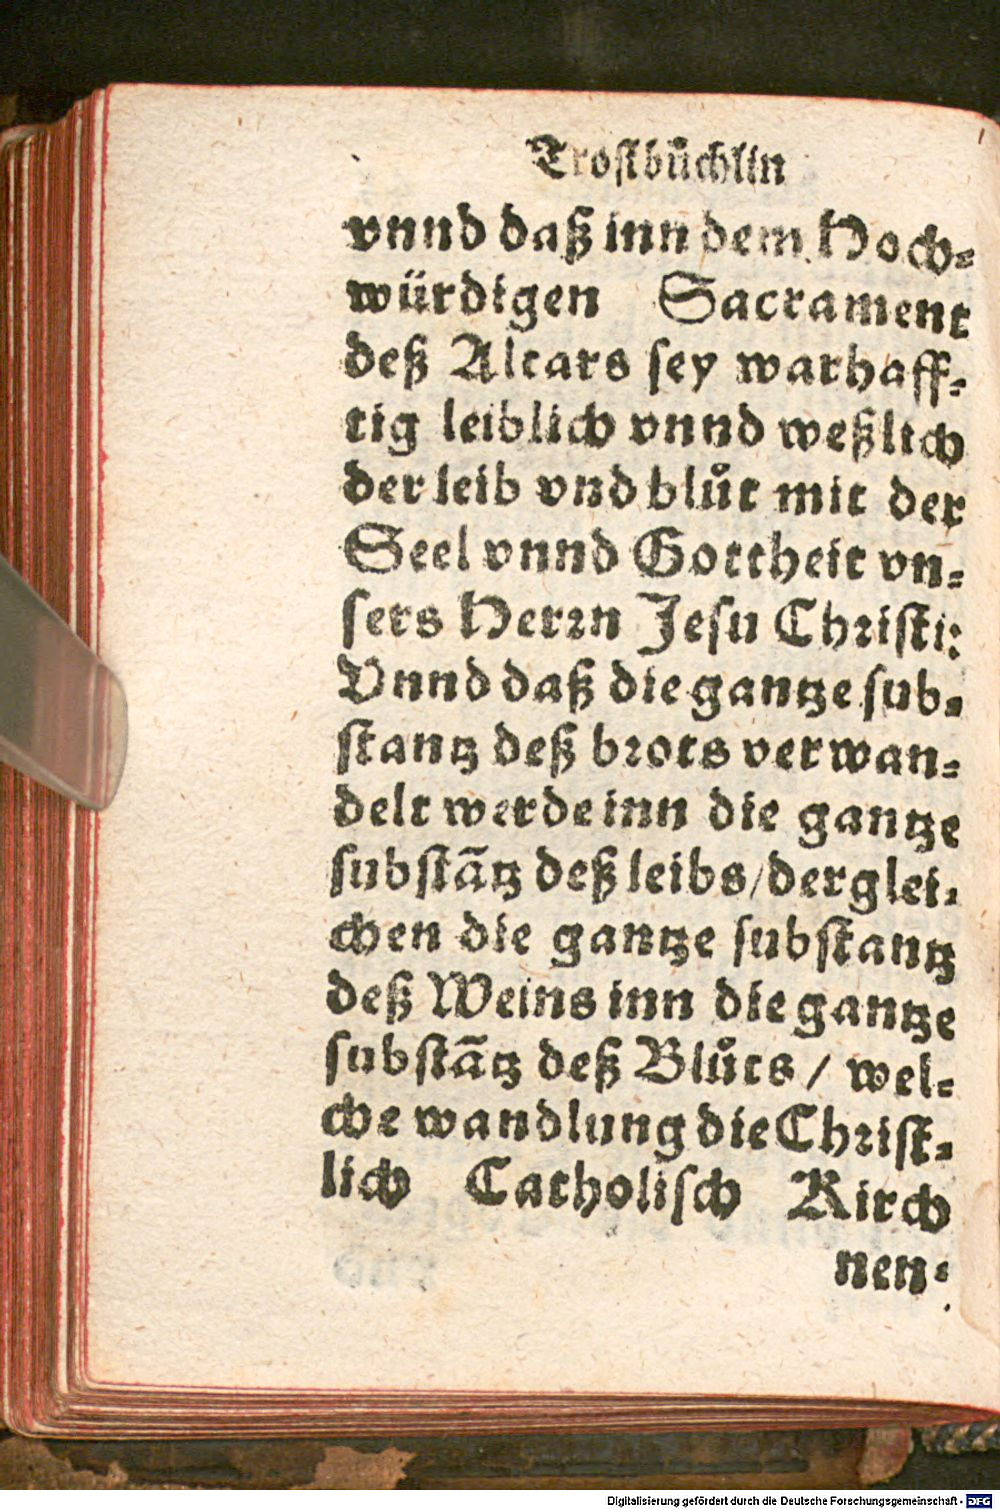 Trostbuͤchlin
vnnd daß inn dem Hoch⸗
würdigen Sacrament
deß Altars sey warhaff⸗
tig leiblich vnnd weßlich
der leib vnd bluͦt mit der
Seel vnnd Gottheit vn⸗
sers Herꝛn Jesu Chꝛisti:
Vnnd daß die gantze sub⸗
stantz deß bꝛots verwan⸗
delt werde inn die gantze
substãtz deß leibs/dergleі⸗
chen die gantze substantz
deß Weins inn die gantze
substãtz deß Bluͦts / wel⸗
che wandlung die Chꝛist⸗
lich Catholisch Kirch
nen⸗
Digitalisierung gefördert durch die Deutsche Forschungsgemeinschaft - DFG